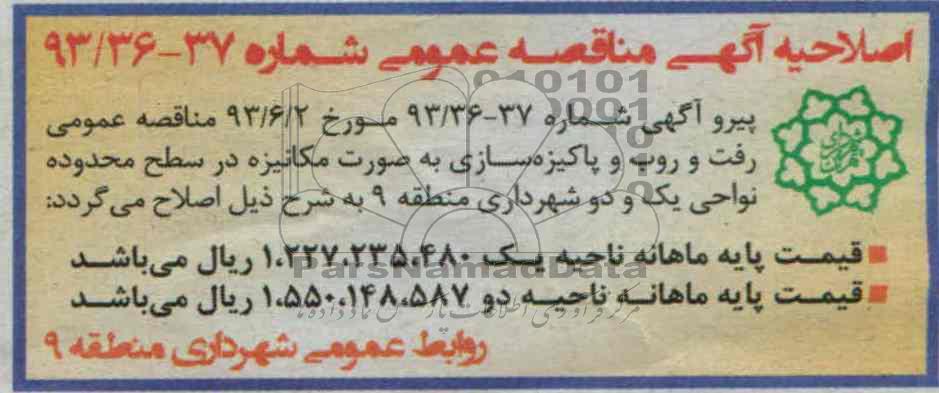 اصلاحیه آگهی مناقصه عمومی شماره ۳۷-۹۳/۳۶
پیرو آگهی شماره ۳۷-۹۳/۳۶ مورخ ۹۳/۶/۲ مناقصه عمومی
رفت و روب و پاکیزه‌سازی به صورت مکانیزه در سطح محدوده
نواحی یک و دو شهرداری منطقه ۹ به شرح ذیل اصلاح می‌گردد:
قیمت پایه ماهانه ناحیه یک ۱،۲۲۷،۲۳۵،۴۸۰ ریال می‌باشد
قیمت پایه ماهانه ناحیه دو ۱،۵۵۰،۱۴۸،۵۸۷ ریال می‌باشد
ParsNamadData
روابط عمومی شهرداری منطقه ۹